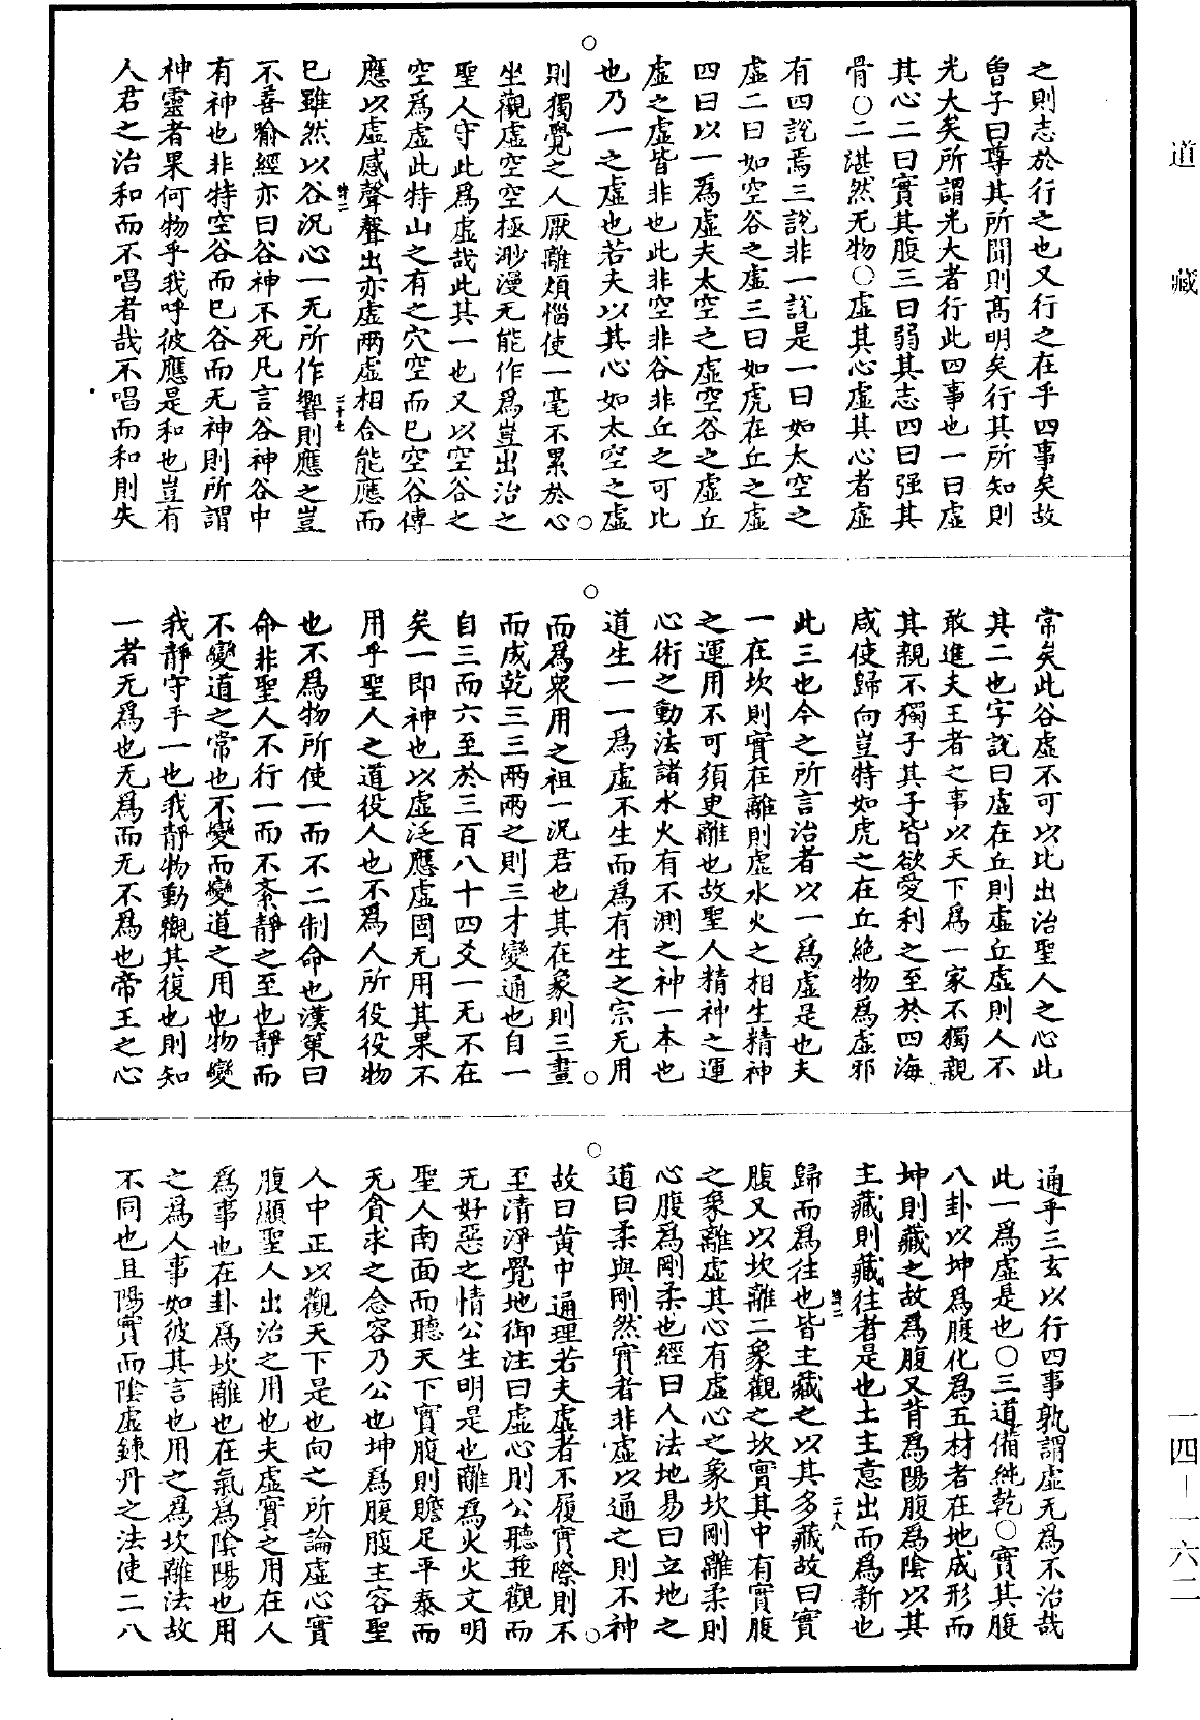 道藏
之則志於行之也又行之在乎四事矣故
曾子曰尊其所聞則高明矣行其所知則
光大矣所謂光大者行此四事也一曰虛
其心二曰實其腹三曰弱其志四曰强其
骨○二湛然无物○虛其心虛其心者虛
有四說焉三說非一說是一曰如太空之
虛二曰如空谷之虛三曰如虎在丘之虛
四曰以一爲虛夫太空之虛空谷之虛丘
虛之虛皆非也此非空非谷非丘之可比
也乃一之虛也若夫以其心如太空之虛
則獨覺之人厭離煩惱使一毫不累於心
坐觀虛空空極渺漫无能作爲豈出治之
聖人守此爲虛哉此其一也又以空谷之
空爲虛此特山之有之穴空而已空谷傳
應以虛感聲聲出亦虛兩虛相合能應而
二十七
已雖然以谷況心一无所作響則應之豈
不善喻經亦曰谷神不死凡言谷神谷中
有神也非特空谷而已谷而无神則所謂
神靈者果何物乎我呼彼應是和也豈有
人君之治和而不唱者哉不唱而和則失
常矣此谷虛不可以比出治聖人之心此
其二也字說曰虛在丘則虛丘虛則人不
敢進夫王者之事以天下爲一家不獨親
其親不獨子其子皆欲愛利之至於四海
咸使歸向豈特如虎之在丘絶物爲虛邪
此三也今之所言治者以一爲虛是也夫
一在坎則實在離則虛水火之相生精神
之運用不可須臾離也故聖人精神之運
心術之動法諸水火有不測之神一本也
道生一一爲虛不生而爲有生之宗无用
而爲衆用之祖一況君也其在象則三畫
而成乾三三兩兩之則三才變通也自一
自三而六至於三百八十四爻一无不在
矣一即神也以虛泛應虛固无用其果不
用乎聖人之道役人也不爲人所役役物
也不爲物所使一而不二制命也漢策曰
命非聖人不行一而不紊靜之至也靜而
不變道之常也不變而變道之用也物變
我靜守乎一也我靜物動觀其復也則知
一者无爲也无爲而无不爲也帝王之心
通乎三玄以行四事孰謂虛无爲不治哉
此一爲虛是也○三道備純乾○實其腹
八卦以坤爲腹化爲五材者在地成形而
坤則藏之故爲腹又背爲陽腹爲陰以其
主藏則藏往者是也土主意出而爲新也
二十八
歸而爲往也皆主藏之以其多藏故曰實
腹又以坎離二象觀之坎實其中有實腹
之象離虛其心有虛心之象坎剛離柔則
心腹爲剛柔也經曰人法地易曰立地之
道曰柔與剛然實者非虛以通之則不神
故曰黄中通理若夫虛者不履實際則不
至清淨覺地御注曰虛心則公聽並觀而
无好惡之情公生明是也離爲火火文明
聖人南面而聽天下實腹則贍足平泰而
无貪求之念容乃公也坤爲腹腹主容聖
人中正以觀天下是也向之所論虛心實
腹顯聖人出治之用也夫虛實之用在人
爲事也在卦爲坎離也在氣爲陰陽也用
之爲人事如彼其言也用之爲坎離法故
不同也且陽實而陰虛鍊丹之法使二八
一四－一六二